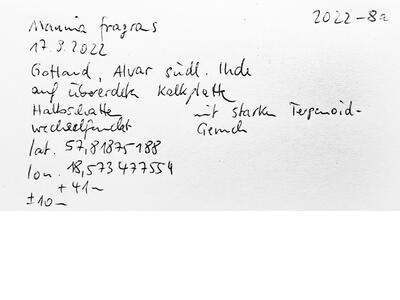 2022-8a
Mannia fragrans
17.9.2022
Gotland, Alvar südl. Ihde
auf übererdeter Kalkplatte
Halbschatten mit starken Terpenoid-
wechselfeucht Geruch
lat. 57,81875188
lon. 18,573477554
+41m
±10m